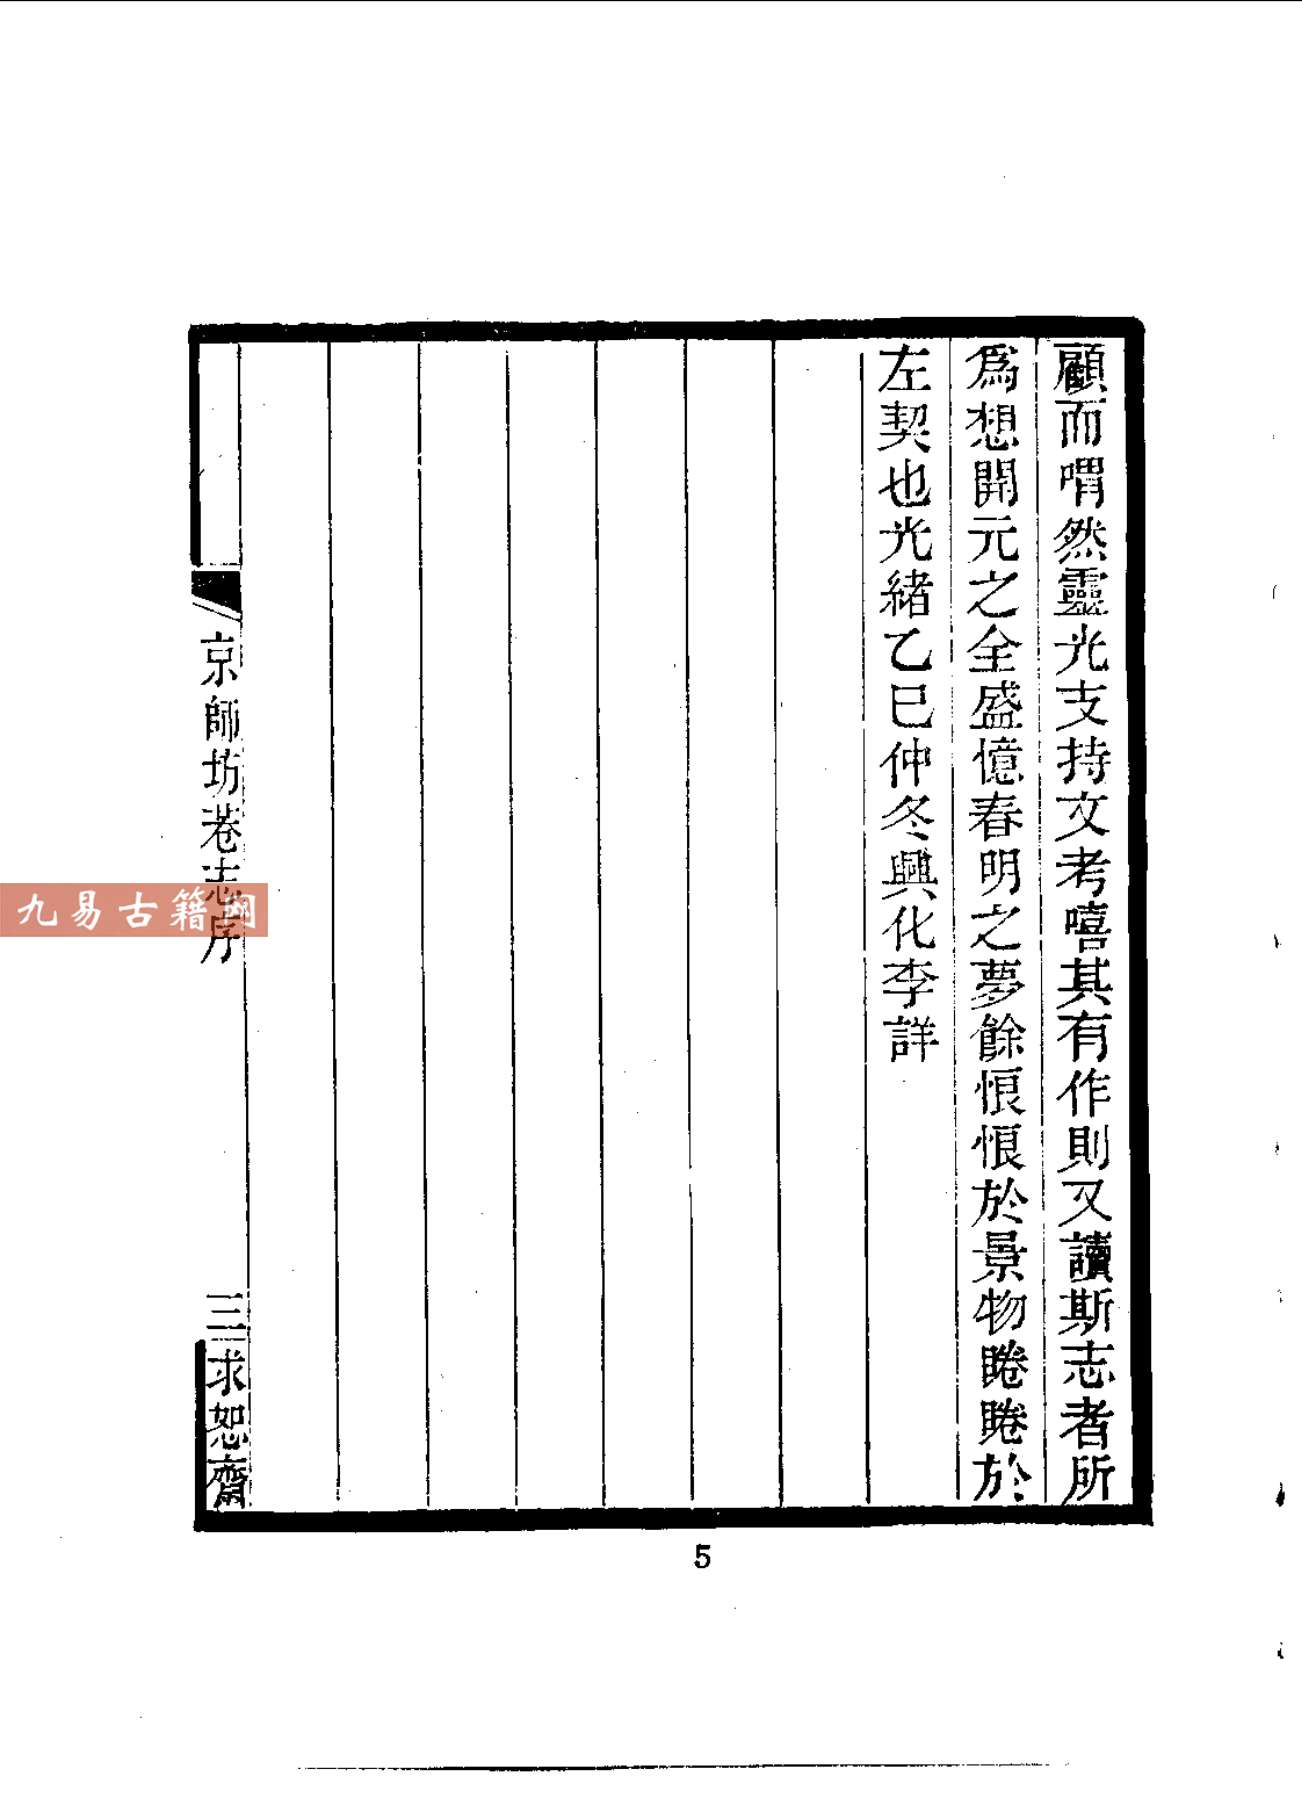 顧而喟然靈光支持文考嘻其有作則又讀斯志者所
爲想開元之全盛憶春明之夢餘悢悢於景物睠睠於
左契也光緒乙巳仲冬興化李詳
京師坊巷志序
三
求恕齋
九易古籍网
5